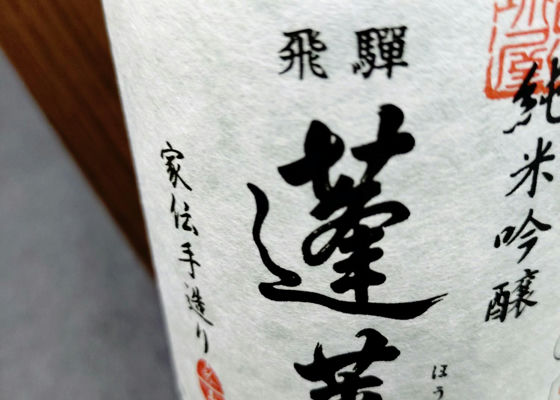 純米吟醸
飛騨
蓬莱
ほう
家伝手造り